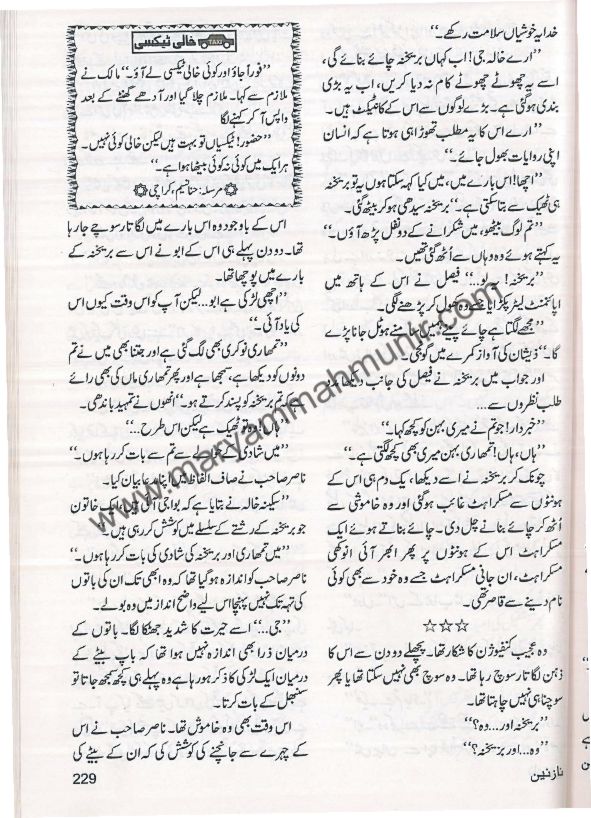 خدا یہ خوشیاں سلامت رکھے۔“
”ارے خالہ جی! اب کہاں بریخنہ چائے بنائے گی،
اسے یہ چھوٹے چھوٹے کام نہ دیا کریں، اب یہ بڑی
بندی ہوگئی ہے۔ بڑے لوگوں سے اس کے کانٹیکٹ ہیں۔
”ارے اس کا یہ مطلب تھوڑا ہی ہوتا ہے کہ انسان
اپنی روایات بھول جائے۔“
”اچھا! اس بارے میں، میں کیا کہہ سکتا ہوں یہ تو بریخنہ
ہی ٹھیک سے بتا سکتی ہے۔“ بریخنہ سیدھی ہو کر بیٹھ گئی۔
”تم لوگ بیٹھو، میں شکرانے کے دو نفل پڑھ آؤں۔“
یہ کہتے ہوئے وہ وہاں سے اُٹھ گئی تھیں۔
”بریخنہ! یہ لو...“ فیصل نے اس کے ہاتھ میں
اپائنمنٹ لیٹر پکڑایا جسے وہ کھول کر پڑھنے لگی۔
”مجھے لگتا ہے چائے پینے ہمیں سامنے ہوٹل جانا پڑے
گا۔“ ذیشان کی آواز کمرے میں گونجی۔
اور جواب میں بریخنہ نے فیصل کی جانب دیکھا
طلب نظروں سے...
”خبردار! جو تم نے میری بہن کو کچھ کہا۔“
”ہاں، ہاں! تمھاری بہن میری بھی کچھ لگتی ہے۔“
چونک کر بریخنہ نے اسے دیکھا، یک دم ہی اس کے
ہونٹوں سے مسکراہٹ غائب ہوگئی اور وہ خاموشی سے
اُٹھ کر چائے بنانے چل دی۔ چائے بناتے ہوئے ایک
مسکراہٹ اس کے ہونٹوں پر پھر ابھر آئی انوکھی
مسکراہٹ، ان جانی مسکراہٹ جسے وہ خود سے بھی کوئی
نام دینے سے قاصر تھی۔
☆☆☆
وہ عجیب کنفیوژن کا شکار تھا۔ پچھلے دو دن سے اس کا
ذہن لگاتار سوچ رہا تھا۔ وہ سوچ بھی نہیں سکتا تھا یا پھر
سوچنا ہی نہیں چاہتا تھا۔
”بریخنہ اور... وہ؟“
”وہ... اور بریخنہ؟“
خالی ٹیکسی
TAXI
”فوراً جاؤ اور کوئی خالی ٹیکسی لے آؤ۔“ مالک نے
ملازم سے کہا۔ ملازم چلا گیا اور آدھے گھنٹے کے بعد
واپس آ کر کہنے لگا
”حضور! ٹیکسیاں تو بہت ہیں لیکن خالی کوئی نہیں۔
ہر ایک میں کوئی نہ کوئی بیٹھا ہوا ہے۔“
مرسلہ: حنا تسنیم، کراچی
اس کے باوجود وہ اس بارے میں لگاتار سوچے جا رہا
تھا۔ دو دن پہلے ہی اس کے ابو نے اس سے بریخنہ کے
بارے میں پوچھا تھا۔
”اچھی لڑکی ہے ابو... لیکن آپ کو اس وقت کیوں اس
کی یاد آئی۔“
”تمھاری نوکری بھی لگ گئی ہے اور جتنا بھی میں نے تم
دونوں کو دیکھا ہے، سمجھا ہے اور پھر تمھاری ماں کی بھی رائے
ہے کہ تم بریخنہ کو پسند کرتے ہو۔“ انھوں نے تمہید باندھی۔
”ہاں! وہ تو ٹھیک ہے لیکن اس طرح...“
”میں شادی کے حوالے سے تم سے بات کر رہا ہوں۔“
ناصر صاحب نے صاف الفاظ میں اپنا مدعا بیان کیا۔
”سکینہ خالہ نے بتایا ہے کہ بوا جی آئی ہیں ایک خاتون
جو بریخنہ کے رشتے کے سلسلے میں کوشش کر رہی ہیں۔“
”میں تمھاری اور بریخنہ کی شادی کی بات کر رہا ہوں۔“
ناصر صاحب کو اندازہ ہو گیا تھا کہ وہ ابھی تک ان کی باتوں
کی تہہ تک نہیں پہنچا اس لیے واضح انداز میں وہ بولے۔
”جی...“ اسے حیرت کا شدید جھٹکا لگا۔ باتوں کے
درمیان ذرا بھی اندازہ نہیں ہوا تھا کہ باپ بیٹے کے
درمیان ایک لڑکی کا ذکر ہو رہا ہے وہ پہلے ہی کچھ سمجھ جاتا تو
سنبھل کے بات کرتا۔
اس وقت بھی وہ خاموش تھا۔ ناصر صاحب نے اس
کے چہرے سے جانچنے کی کوشش کی کہ ان کے بیٹے کی
نازنین
229
www.maryammahmunir.com